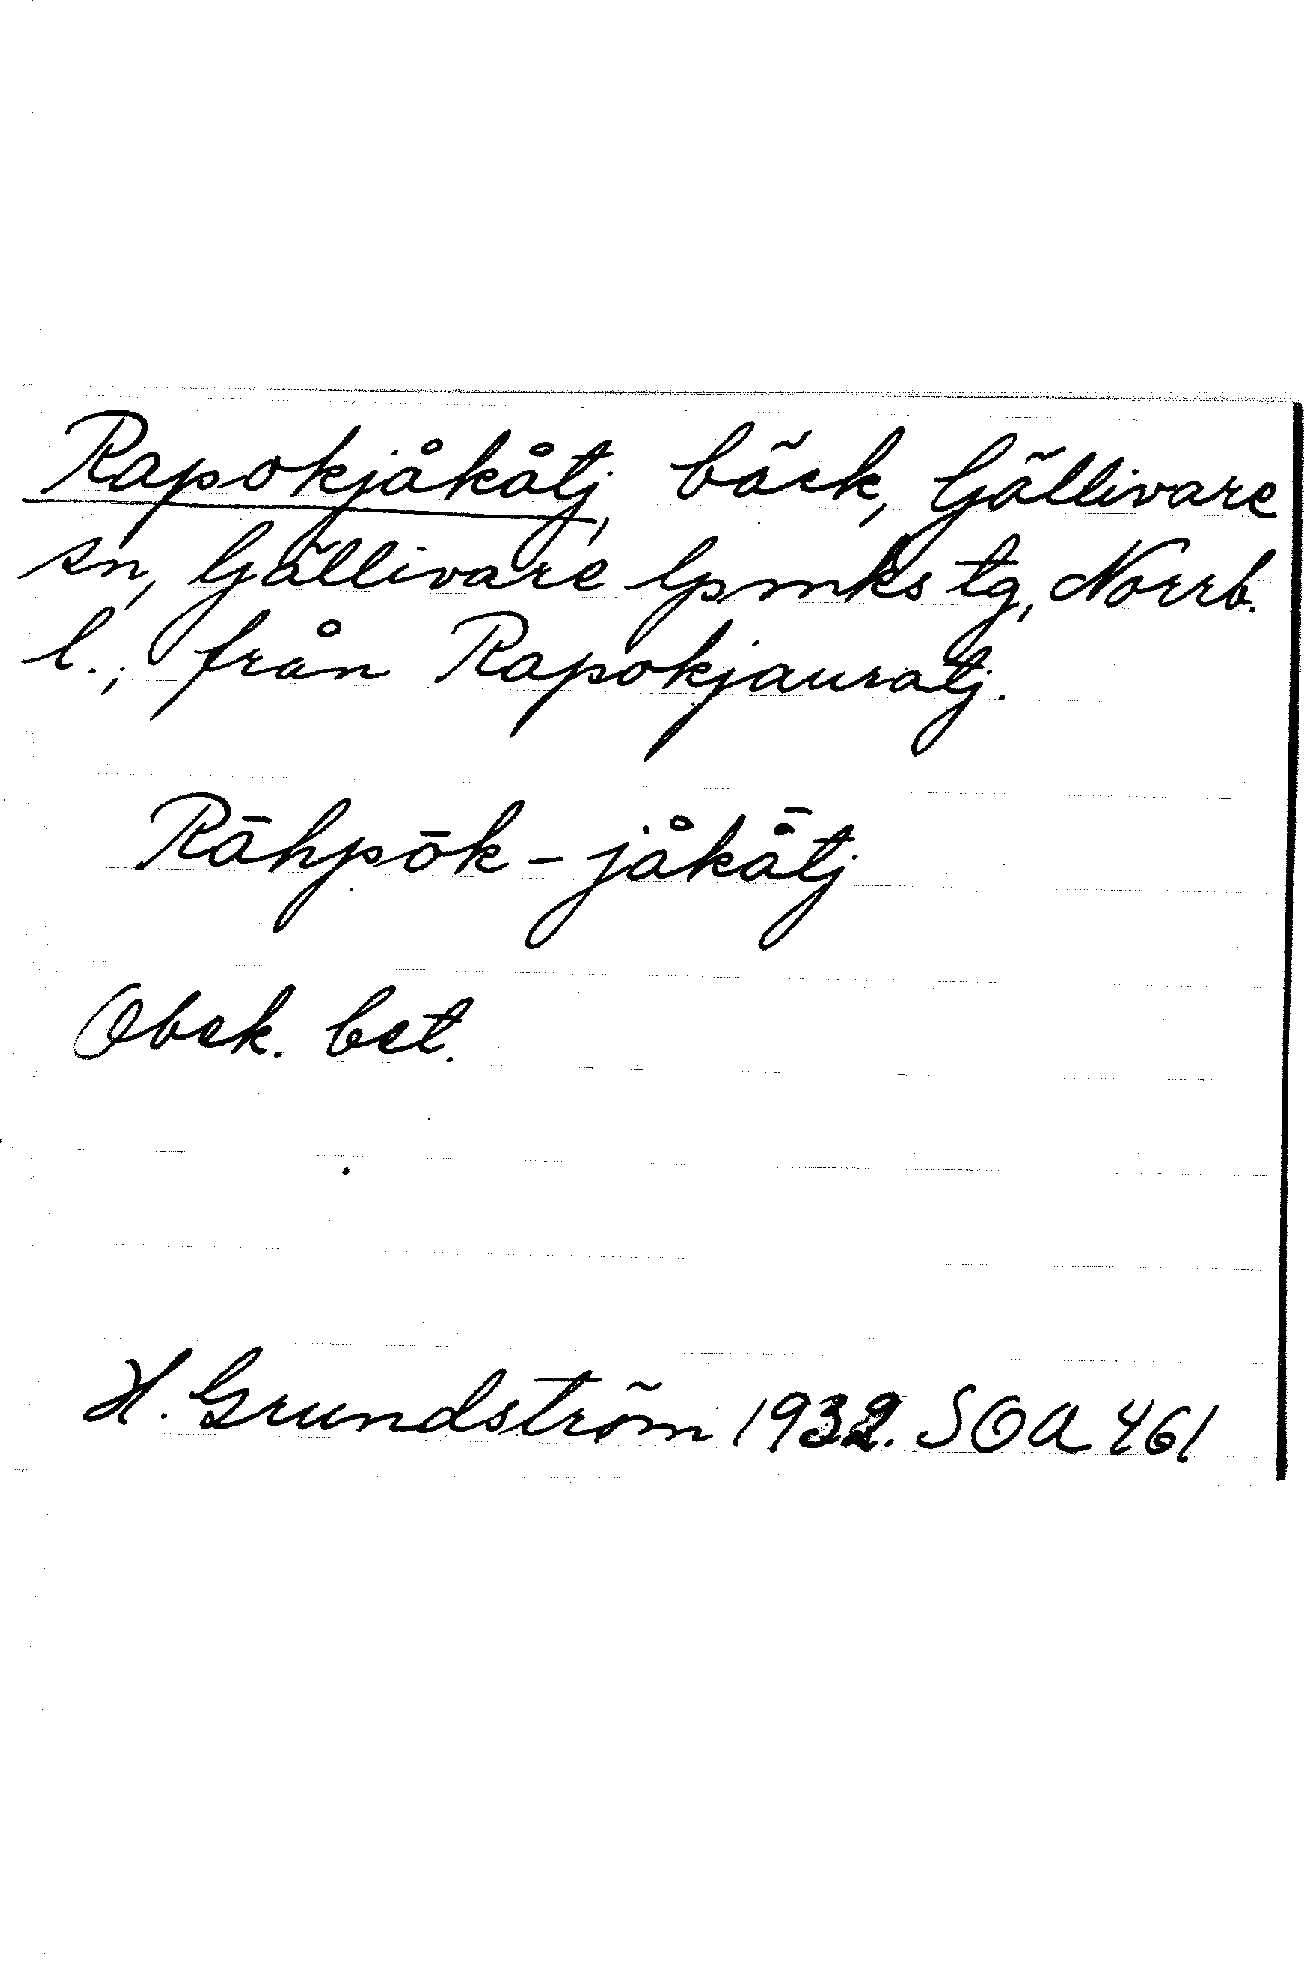 Rapokjåkåtj, bäck, Gällivare
sn, Gällivare lpmks tg, Norrb.
l.; från Rapokjauratj.
Rāhpōk-jåkå̄tj
Obek. bet.
H. Grundström 1932. SOA 461